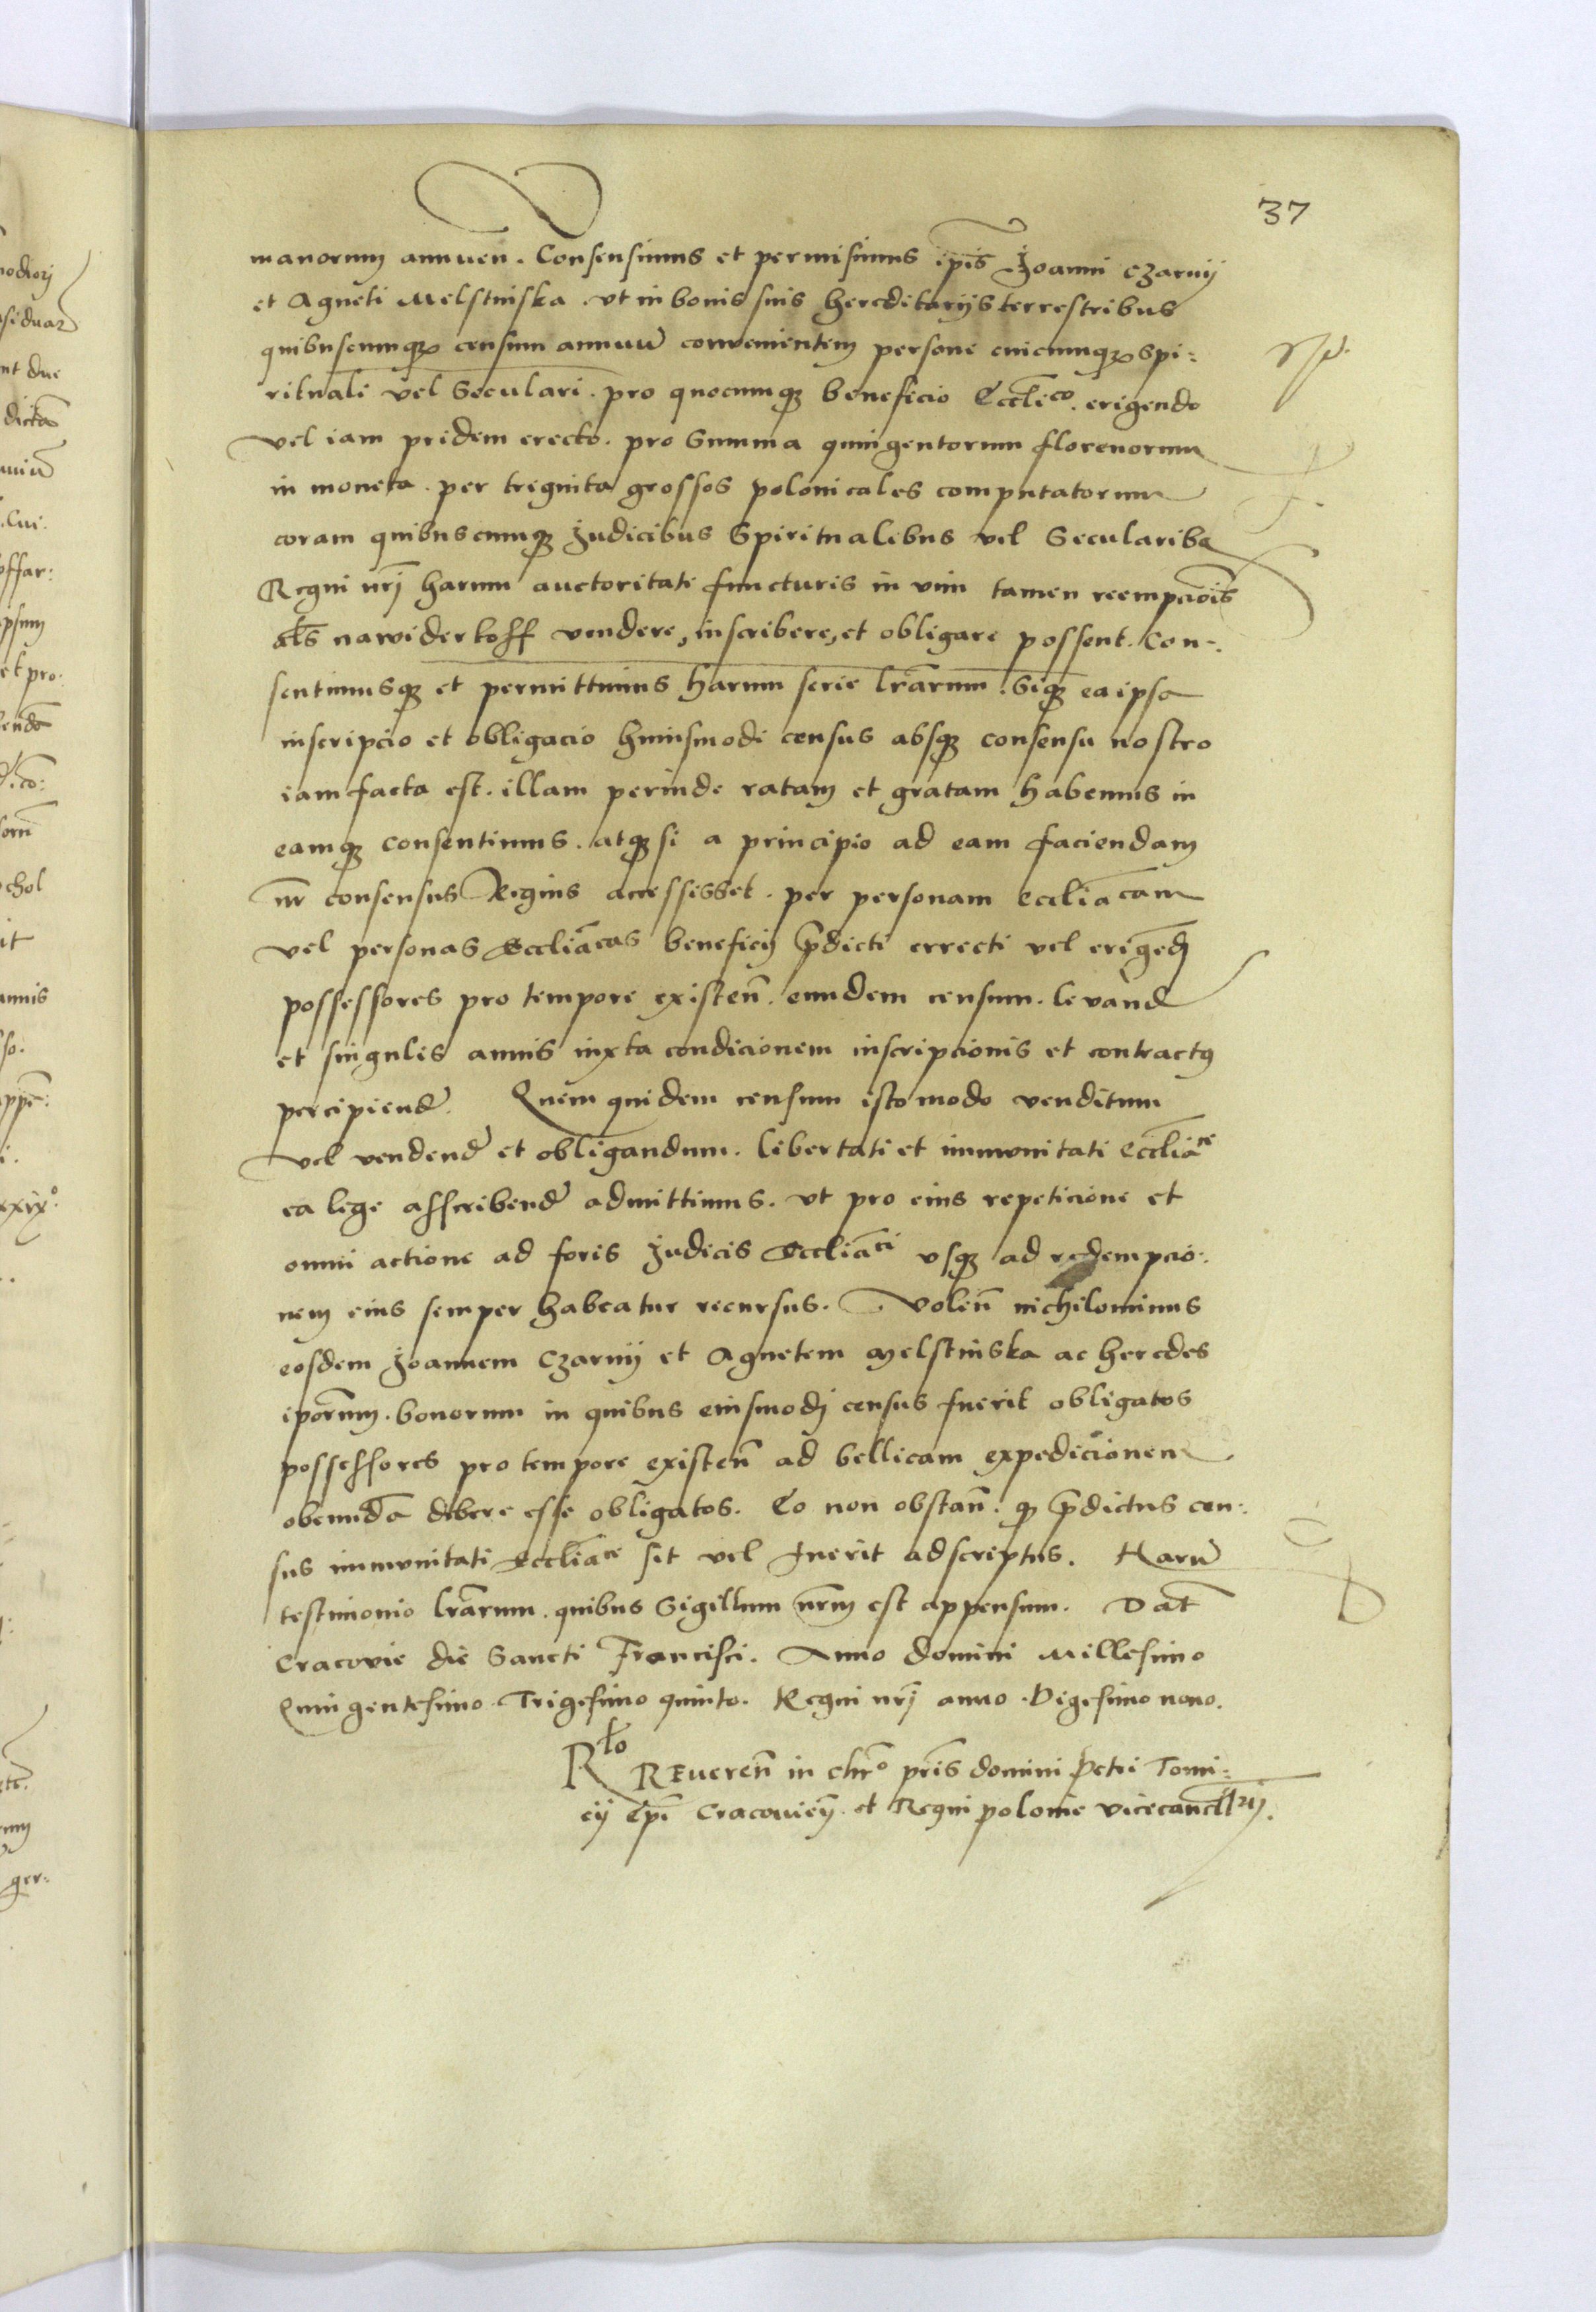 37
manorum annuen̄. Consensimus et permisimus ip̄is Joanni Czarnij
et Agneti Melstinska. vt in bonis suis hereditarijs terrestribus
quibuscumqꝫ censum annuū convenientem persone cuicumqꝫ Spi:
rituali vel Seculari. pro quocumqꝫ beneficio Eccl̄ico. erigendo
vel iam pridem erecto. pro Summa quingentorum florenorum
in moneta. per trìginta grossos polonicales computatorum
coram quibuscumqꝫ Judicibus Spiritualibus vel Secularibꝰ
Regni nr̄j harum auctoritati functuris in vim tamen reempcōis
al̄s nawiderkoff vendere, inscribere, et obligare possent. Con-
sentimusqꝫ et permittimus harum serie lr̄arum. Siqꝫ ea ipsa
inscripcio et obligacio huiusmodi census absqꝫ consensu nostro
iam facta est. illam perinde ratam et gratam habemus in
eamqꝫ consentimus. atqꝫ si a principio ad eam faciendam
nr̄ consensus Regius accessisset. per personam eccl̄iacam
vel personas Eccl̄iacas beneficij p̄dicti errecti vel erigēdj
possessores pro tempore existen̄. eundem censum. levand̄
et singulis annis iuxta condicionem inscripcionis et contractꝰ
percipiend̄. Quem quidem censum isto modo venditum
vel vendend̄ et obligandum. libertati et immunitati eccl̄iace
ea lege asscribend̄ admittimus. vt pro eius repeticione et
omni actione ad foris Judicis Eccl̄iaci vsqꝫ ad redempcio:
nem eius semper habeatur recursus. Volen̄ nichilominus
eosdem Joannem Czarnij et Agnetem Melstinska ac heredes
ip̄orum. bonorum in quibus eiusmodj census fuerit obligatos
possessores pro tempore existen̄ ad bellicam expedicionem
obeundā debere esse obligatos. Eo non obstan̄. qꝫ p̄dictus cen:
sus immunitati Eccl̄iace sit vel fuerit adscriptus. Harū
testimonio lr̄arum. quibus Sigillum nr̄m est appensum. Dat̄
Cracovie die Sancti Francisci. Anno domini Millesimo
Quingentesimo Trigesimo quinto. Regni nr̄j anno. Vigesimo nono.
Rl̄o REueren̄ in chr̄o pr̄is domini Petri Tomi:
cij Ep̄i Cracovien̄. et Regni polonie vicecancell̄rij.